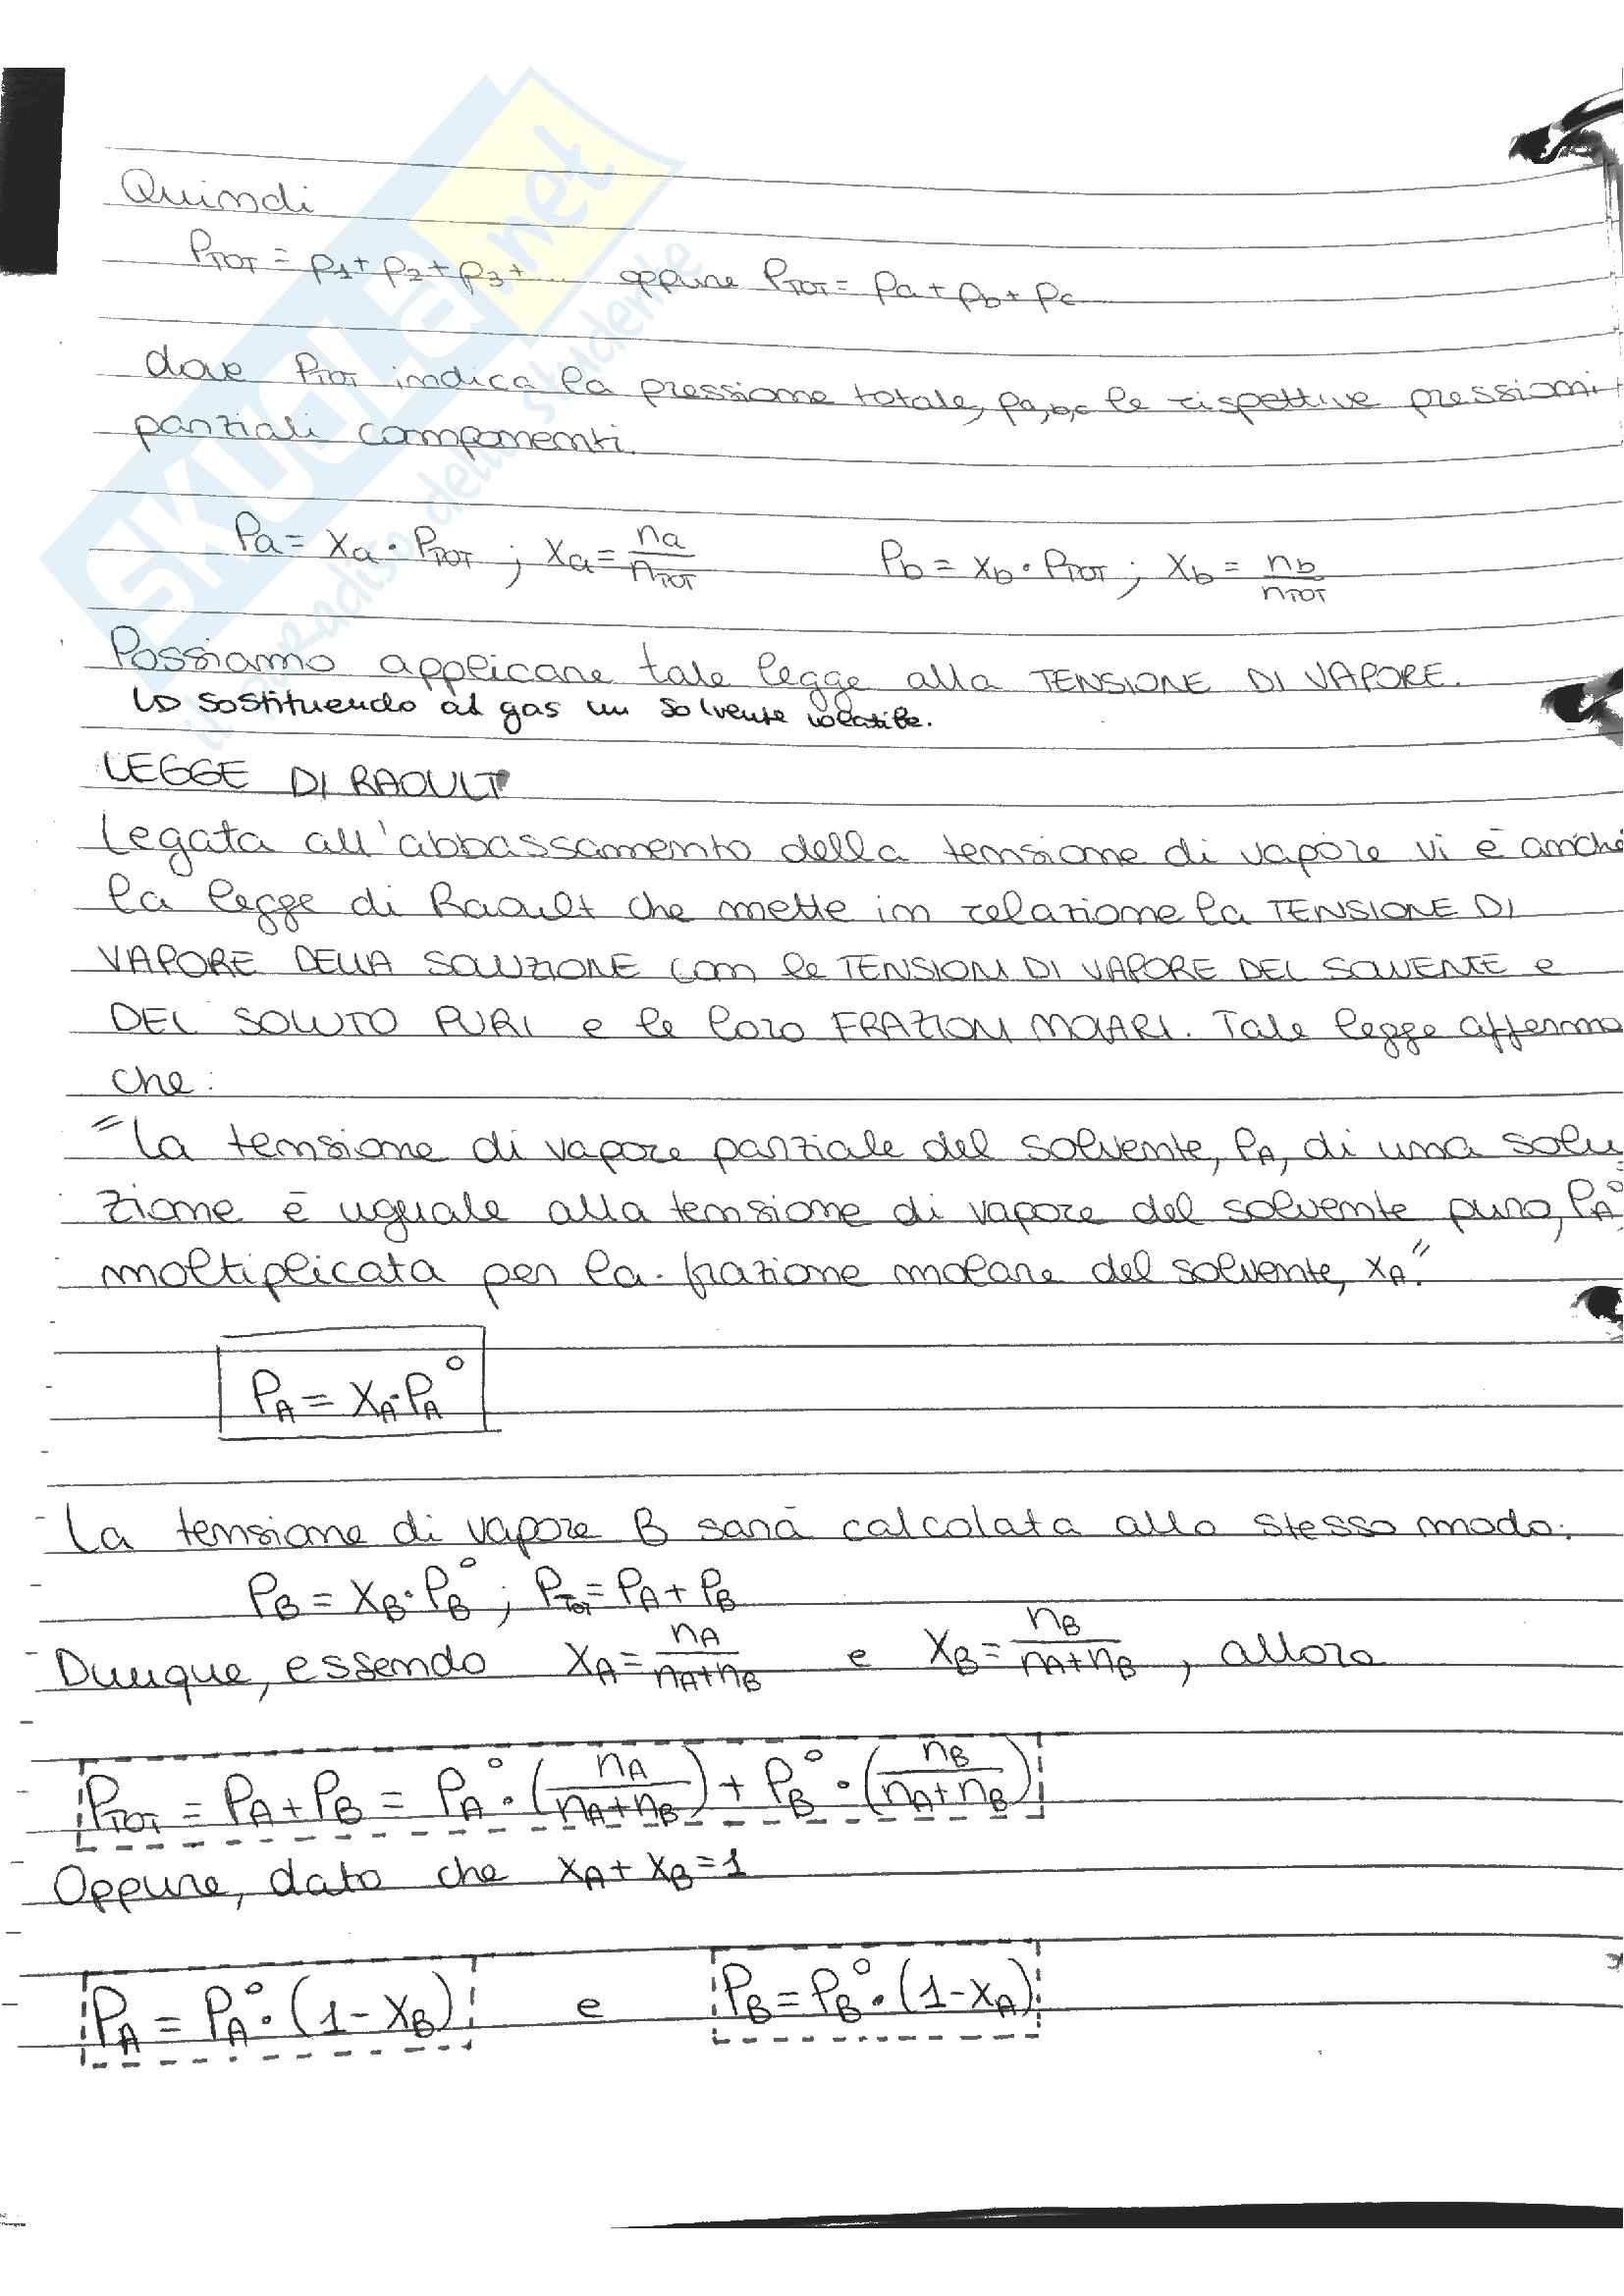 SKUOLA.net
il paradiso dello studente
Quindi
PTOT = p1 + p2 + p3 + .... oppure PTOT = pa + pb + pc
dove PTOT indica la pressione totale, pa,b,c le rispettive pressioni
parziali componenti.
Pa = Xa · PTOT ; Xa = na/nTOT Pb = Xb · PTOT ; Xb = nb/nTOT
Possiamo applicare tale legge alla TENSIONE DI VAPORE.
↳ sostituendo al gas un solvente volatile.
LEGGE DI RAOULT
Legata all'abbassamento della tensione di vapore vi è anche
la legge di Raoult che mette in relazione la TENSIONE DI
VAPORE DELLA SOLUZIONE con le TENSIONI DI VAPORE DEL SOLVENTE e
DEL SOLUTO PURI e le loro FRAZIONI MOLARI. Tale legge afferma
che:
"La tensione di vapore parziale del solvente, PA, di una solu
zione è uguale alla tensione di vapore del solvente puro, PA°
moltiplicata per la frazione molare del solvente, XA."
PA = XA · PA°
La tensione di vapore B sarà calcolata allo stesso modo:
PB = XB · PB° ; PTOT = PA + PB
Dunque, essendo XA = nA/(nA+nB) e XB = nB/(nA+nB), allora
PTOT = PA + PB = PA° · (nA/(nA+nB)) + PB° · (nB/(nA+nB))
Oppure, dato che XA + XB = 1
PA = PA° · (1 - XB) e PB = PB° · (1 - XA)